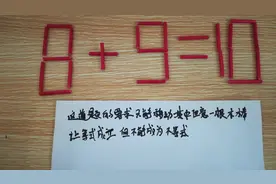 8+9=10
这道题的要求 不能移动其中任意一根木棒
让等式成立 但不能成为不等式